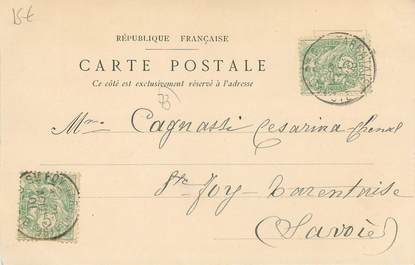 15€
RÉPUBLIQUE FRANÇAISE
CARTE POSTALE
Ce côté est exclusivement réservé à l'adresse
73
Mme Cagnassi Cesarina Chenal
Ste Foy-Tarentaise
(Savoie)